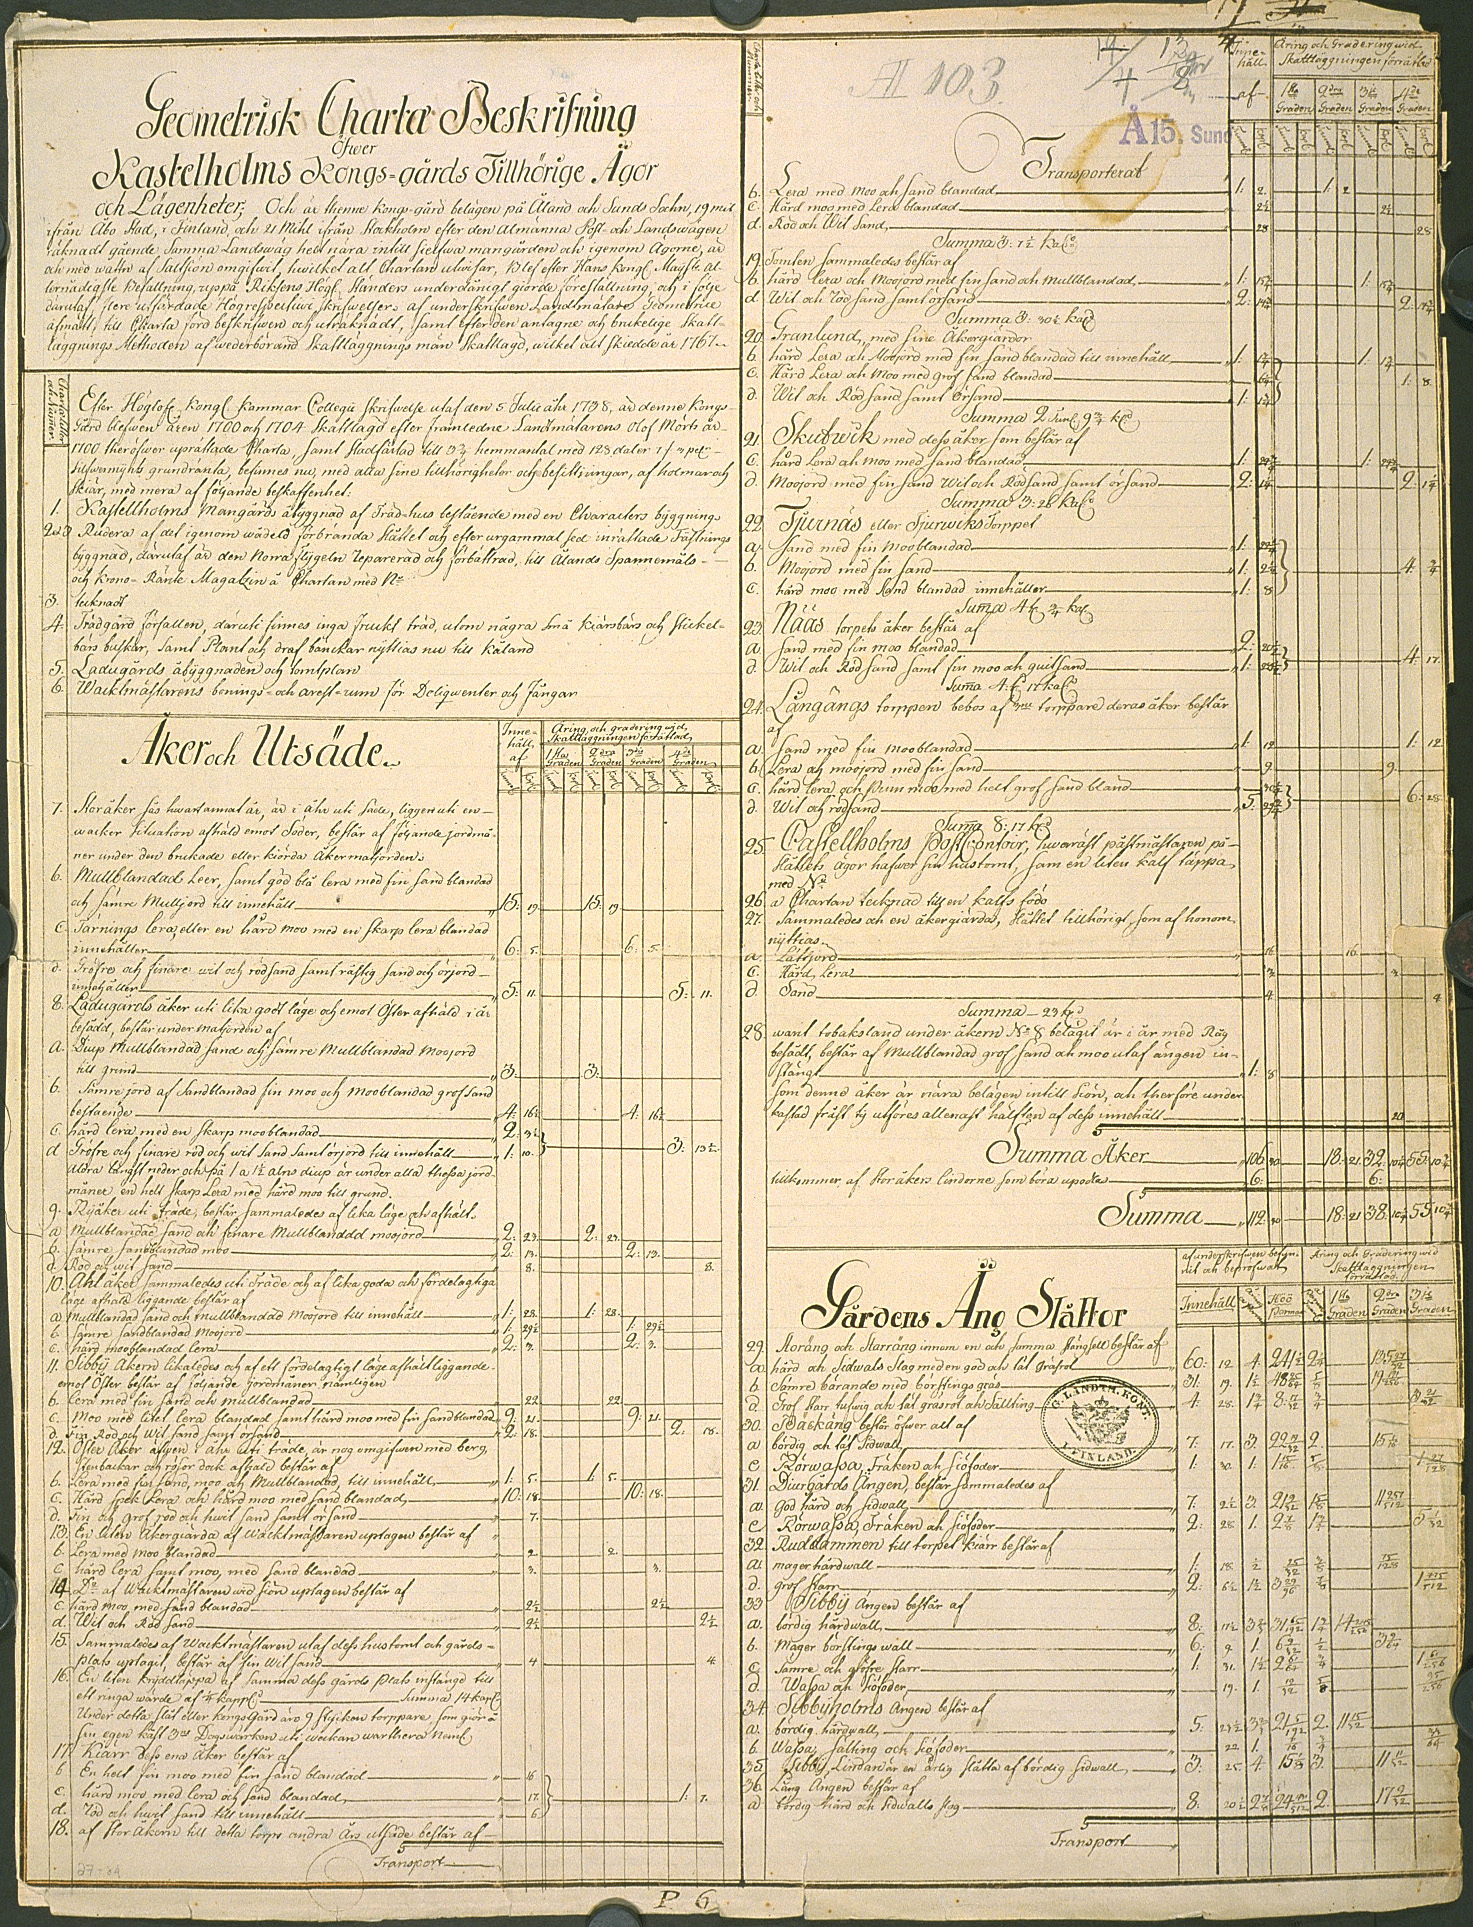 Geometrisk Charta Beskrifning
Öfwer
Kastelholms Kongs-gårds Tillhörige Ägor
och Lägenheter; Och är thenne kongs-gård belägen på Åland och Sunds Sochn, 19 mil
ifrån Åbo Stad, i Finland, och 21 Mihl ifrån Stockholm efter den Almänna Post- och Landswägen
räknadt gående samma Landswäg helt nära intill sielfwa mangården och igenom Ägorne, är
och med wattn af Saltsiön omgifwit, hwilket alt Chartan utwisar, Blef efter Hans Kongl. May:ts al-
lernådigste Befallning, uppå Riksens Högl. Ständers underdånigt giorde föreställning och i följe
däraf flere utfärdade Högrespective skrifwelser af underskrifwen Landtmätare Geometrice
afmätt, till Charta förd beskrifwen och uträknadt, samt efter den antagne och brukelige Skatt-
läggnings Methoden af wederbörand Skattläggnings män Skattlagd, wilket alt skiedde år 1767
Efter Höglofl. Kongl. Kammar Collegii skrifwelse utaf den 5 Julii åhr 1738, är denne kongs-
Gård blefwen åren 1700 och 1704 Skattlagd efter framledne Landmätaren Olof Mörts år
1700 theröfwer uprättade Charta, samt Stadfästad till 5¾ hemmantal med 128 daler
Silfwermynts grundränta, befinnes nu, med alla sine tillhörigheter och besittningar, af holmar och
skiär, med mera af följande beskaffenhet:
1. Kastellholms Mangårds åbyggnad af Träd-hus bestående med en Characters byggning
2. Rudera af det igenom wådeld förbrända Slottet och efter urgammal sed inrättade Fästnings
byggnad, därutaf är den Norra flygeln reparerad och förbättrad, till Ålands Spannemåls-
och krono-Ränte Magatzin å Chartan med No
3. tecknadt
4. Trädgård förfallen, däruti finnes inga frukt träd, utom några små kiärsbärs och stickel-
bärs buskar, samt Plant och draf bänckar nyttias nu till kåland
5. Ladugårds åbyggnaden och tomtplan
6. Wacktmästarens bonings- och arest-rum för Deliqwenter och Fångar
Åker och Utsäde
Innehåll af
Äring och gradering wid Skattläggningen förrättad
1sta Graden 2dra Graden 3die Graden 4de Graden
7. Storåker sås hwartannat år, är i åhr uti Säde, ligger uti en
wacker situation afhäld emot Söder, består af följande jordmå-
ner under den brukade eller kiörda åkermatjorden:
b. Mullblandad Leer, samt god blå lera med fin sand blandad
och sämre Mulljord till innehåll 15: 19 15: 19
c. Tärnings Lera eller en hård moo med en skarp lera blandad
innehåller 6: 5. 6: 5.
d. Gröfre och finare wit och röd sand samt rästig sand och örjord
innehåller 5: 11. 5: 11.
8. Ladugårds åker uti lika godt läge och emot Öster afhäld i år
besådd, består under matjorden af
a. Diup Mullblandad sand och sämre Mullblandad Moojord
till grund 3: 3:
b. Sämre jord af Sandblandad fin moo och Mooblandad grof sand
bestående 4: 16½ 4: 16½
c. hård lera med en skarp mooblandad 2: 3½
d. Gröfre och finare röd och wit sand samt örjord till innehåll 1: 10. 3: 13½
aldra längst neder och på 1 a 1½ alns diup är under alla thessa jord-
måner en helt skarp Lera med hård moo till grund.
9. Nyåker uti träde, består sammaledes af lika läge och afhält.
a. Mullblandad sand och finare Mullblandad moojord 2: 23 2: 23.
b. Sämre sandblandad moo 2: 13. 2: 13.
d. Röd och wit sand 8. 8.
10. Ahl åker sammaledes uti Träde och af lika goda och fördelagtiga
läge afhäld liggande består af
a. Mullblandad sand och mullblandad Moojord till innehåll 1: 28. 1: 28.
b. Sämre sandblandad Moojord 1: 29½ 1: 29½
c. hård mooblandad lera 2: 3. 2: 3.
11. Sibby Åkern likaledes och af ett fördelagtigt läge afhält liggande
emot Öster består af följande Jordmåner nämligen
b. Lera med fin sand och mullblandad 22 22
c. Moo med litet lera blandad samt hård moo med fin sandblandad 9: 21. 9: 21.
d. Fin Röd och Wit sand samt örsand 2: 18. 2: 18.
12. Öster Åker äfwen i åhr uti träde, är nog omgifwen med berg,
stenbackar och rösor dock afhäld består af
b. Lera med fin sand, moo och Mullblandad, till innehåll 1: 5. 1: 5.
c. Hård spek Lera och hård moo med sand blandad, 10: 18. 10: 18.
d. Fin och grof röd och hwit sand samt ör sand 7.
13. En liten Åkergärda af Wacktmästaren uptagen består af
b. Lera med moo blandad 2 2.
c. hård lera samt moo, med sand blandad 3. 3.
14. Do af Wacktmästaren wid siön uptagen består af
c. hård moo, med sand blandad 2½ 2½
d. Wit och Röd sand 2½ 2½
15. Sammaledes af Wacktmästaren utaf dess hustomt och gårds-
plats uptagit, består af fin wit sand 4 4
16. En liten kryddtäppa af samma dess gårds plats instängd till
ett ringa wärde af ¼ kappe Summa 14 kapp
Under detta slått eller kongsGård äro 9 stycken torppare, som giör å
sin egen kåst 3ne Dagswärken uti weckan warthera Neml.
17. Kiärr dess ena Åker består af
b. En helt fin moo med fin sand blandad 16
c. hård moo med lera och sand blandad, 17. 1: 7.
d. röd och hwit sand till innehåll 6
18. af stor Åkern till detta torps andra års utsäde består af
Transport
P 6
AII 103
Å15. Sund
Innehåll af
Äring och Gradering wid Skattläggningen förrättad
1sta Graden 2dra Graden 3die Graden 4de Graden
Transporterat
b. Lera med Moo och sand blandad 1: 2. 1: 2
c. Hård moo med Lera blandad 2½ 2½
d. Röd och Wit Sand, 28 28
Summa 3: 1½ kap
19. Tomten sammaledes består af
b. hård lera och Moojord med fin sand och Mullblandad
d. Wit och röd sand samt örsand
Summa 3: 30½ kap
20. Granlund, med sine Åkergiärdor
b. hård Lera och Moojord med fin sand blandad till innehåll
c. Hård Lera och Moo med grof sand blandad 1: 8.
d. Wit och Röd sand samt örsand
Summa 2 Tun 9¾ k
21. Skutwik med dess åker som består af
c. hård Lera och moo med sand blandad
d. Moojord med fin sand Wit och Röd sand samt örsand
Summa 3: 28 kap
22. Tjurnäs eller Tjurwiks Torppet
a. sand med fin mooblandad
b. Moojord med fin sand
c. hård moo med sand blandad innehåller 1: 8
Summa 4 ¾ kap
23. Nääs torpets åker består af
a. sand med fin moo blandad
d. Wit och Röd sand samt fin moo och gulsand 4. 17.
Summa 4: 17 kap
24. Långängs torppen bebos af 3ne torppare deras åker består
af
a. sand med fin mooblandad 1: 12 1: 12
b. Lera och moojord med fin sand 9. 9
c. hård lera och Brun moo med helt grof sand bland 6: 28
d. Wit och rödsand
Summa 8: 17 kap
25. Castellholms Post Contoir, hwaräst pästmästaren på
slåttets ägor hafwer sin hustomt, som en liten kalf täppa
med No
26. a Chartan tecknad till en kalfs födo
27. Sammaledes och en åkergiärda, slåttet tillhörigt, som af honom
nyttias.
a. Lättjord 16 16
c. Hård Lera 3 3
d. Sand 4 4
Summa 23 k
28. want tobaksland under åkern No 8 belägit är i år med Råg
besådt, består af Mullblandad grof sand och moo utaf ängen in-
stängt 1: 8
som denne åker är nära belägen intill Siön, och therföre under-
kastad fråst ty utföres allenast hälften af dess innehåll 20
Summa Åker 106 30 18: 21 32: 10¼ 55: 10¾
tillkommer af Stor åkers lindorne som böra upodla 6: 6:
Summa 112: 30 18: 21 38: 10¼ 55 10¾
Gårdens Äng Slåttor
Äring och Gradering wid Skattläggningen förrättad
Innehåll Höö Parmar 1sta Graden 2dra Graden 3die Graden
29. Storäng och Starräng innom en och samma stängsell består af
a. hård och sidwals slag med en god och tät gräsrot 60: 12 4.
b. Sämre bärande med börstings gräs 31. 19. 1½
d. Grof starr tufwig och tät gräsrot och sälting 4. 28.
30. Bäckäng består öfwer alt af
a. bördig och tät Sidwall 7: 17. 3.
c. Rörwassa, Fräken och siöfoder 1. 30. 1.
31. Diurgårds Ängen, består sammaledes af
a. god hård och sidwall 7. 2½ 3.
c. Rörwassa, Fräken och siöfoder 2: 28 1.
32. Ruddammen till torpet kiärr består af
a. mager hårdwall 1. 18. ½
d. grof starr 2: 6½ 1½
33. Sibby Ängen består af
a. bördig hårdwall, 8:
b. Mager börstings wall 6: 9 1.
c. Sämre och gröfre starr 1. 31. 1½
d. Wassa och siöfoder, 19. 1.
34. Sibbyholms Ängen består af
a. bördig hårdwall,
b. Wassa, sälting och siöfoder 22 1.
35. Sibby Lindan är en årlig slåtta af bördig sidwall 3: 25 4.
36. Lång Ängen består af
a. bördig hård och sidwalls slag 8:
Transport
G. LANDTM. KONT. I FINLAND.